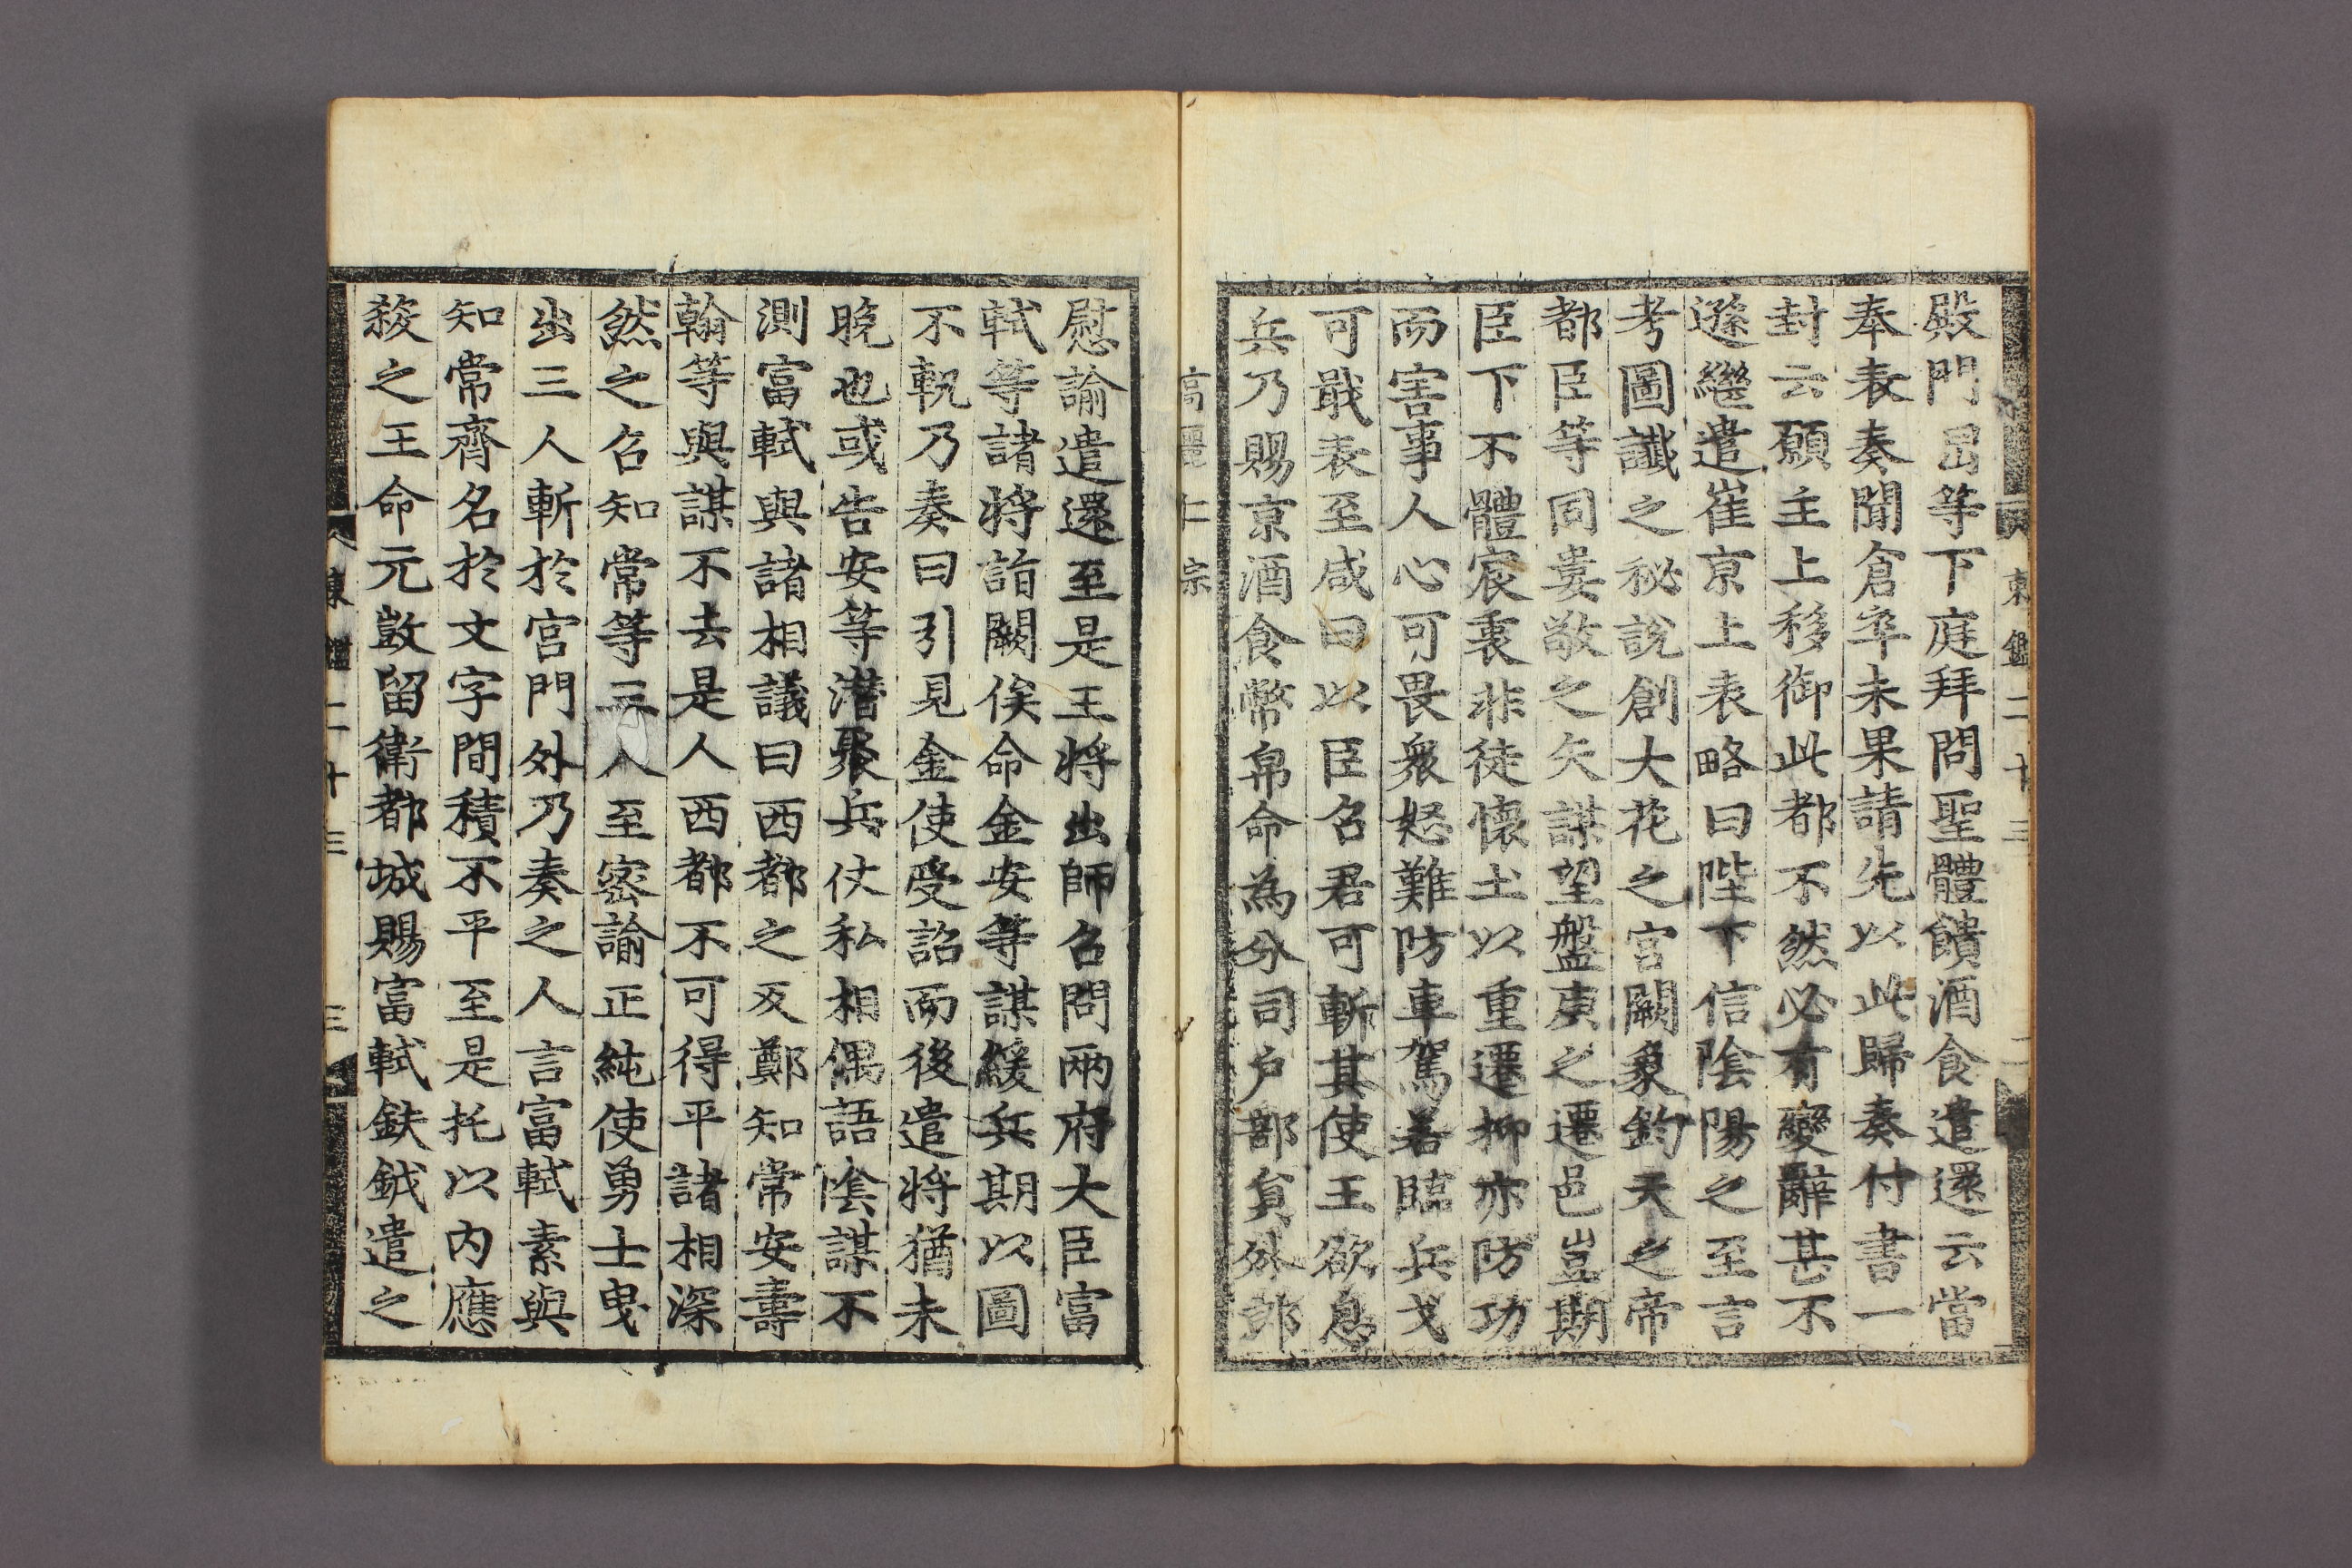 東鑑二十三 二
殿門昷等下庭拜問聖體饋酒食遣還云當
奉表奏聞倉卒未果請先以此歸奏付書一
封云願主上移御此都不然必有變辭甚不
遜繼遣崔京上表略曰陛下信陰陽之至言
考圖讖之秘說創大花之宮闕象鈞天之帝
都臣等同婁敬之矢謀望盤庚之遷邑豈期
臣下不體宸衷非徒懷土以重遷抑亦防功
而害事人心可畏衆怒難防車駕若臨兵戈
可戢表至咸曰以臣召君可斬其使王欲息
兵乃賜京酒食幣帛命為分司戶部負外郞
高麗仁宗
慰諭遣還至是王將出師召問兩府大臣富
軾等諸將詣闕俟命金安等謀緩兵期以圖
不軌乃奏曰引見金使受詔而後遣將猶未
晩也或告安等潛聚兵仗私相偶語陰謀不
測富軾與諸相議曰西都之反鄭知常安壽
翰等與謀不去是人西都不可得平諸相深
然之召知常等三人至密諭正純使勇士曳
出三人斬於宮門外乃奏之人言富軾素與
知常齊名於文字間積不平至是托以內應
殺之王命元敱留衛都城賜富軾鈇鉞遣之
東鑑二十三 三